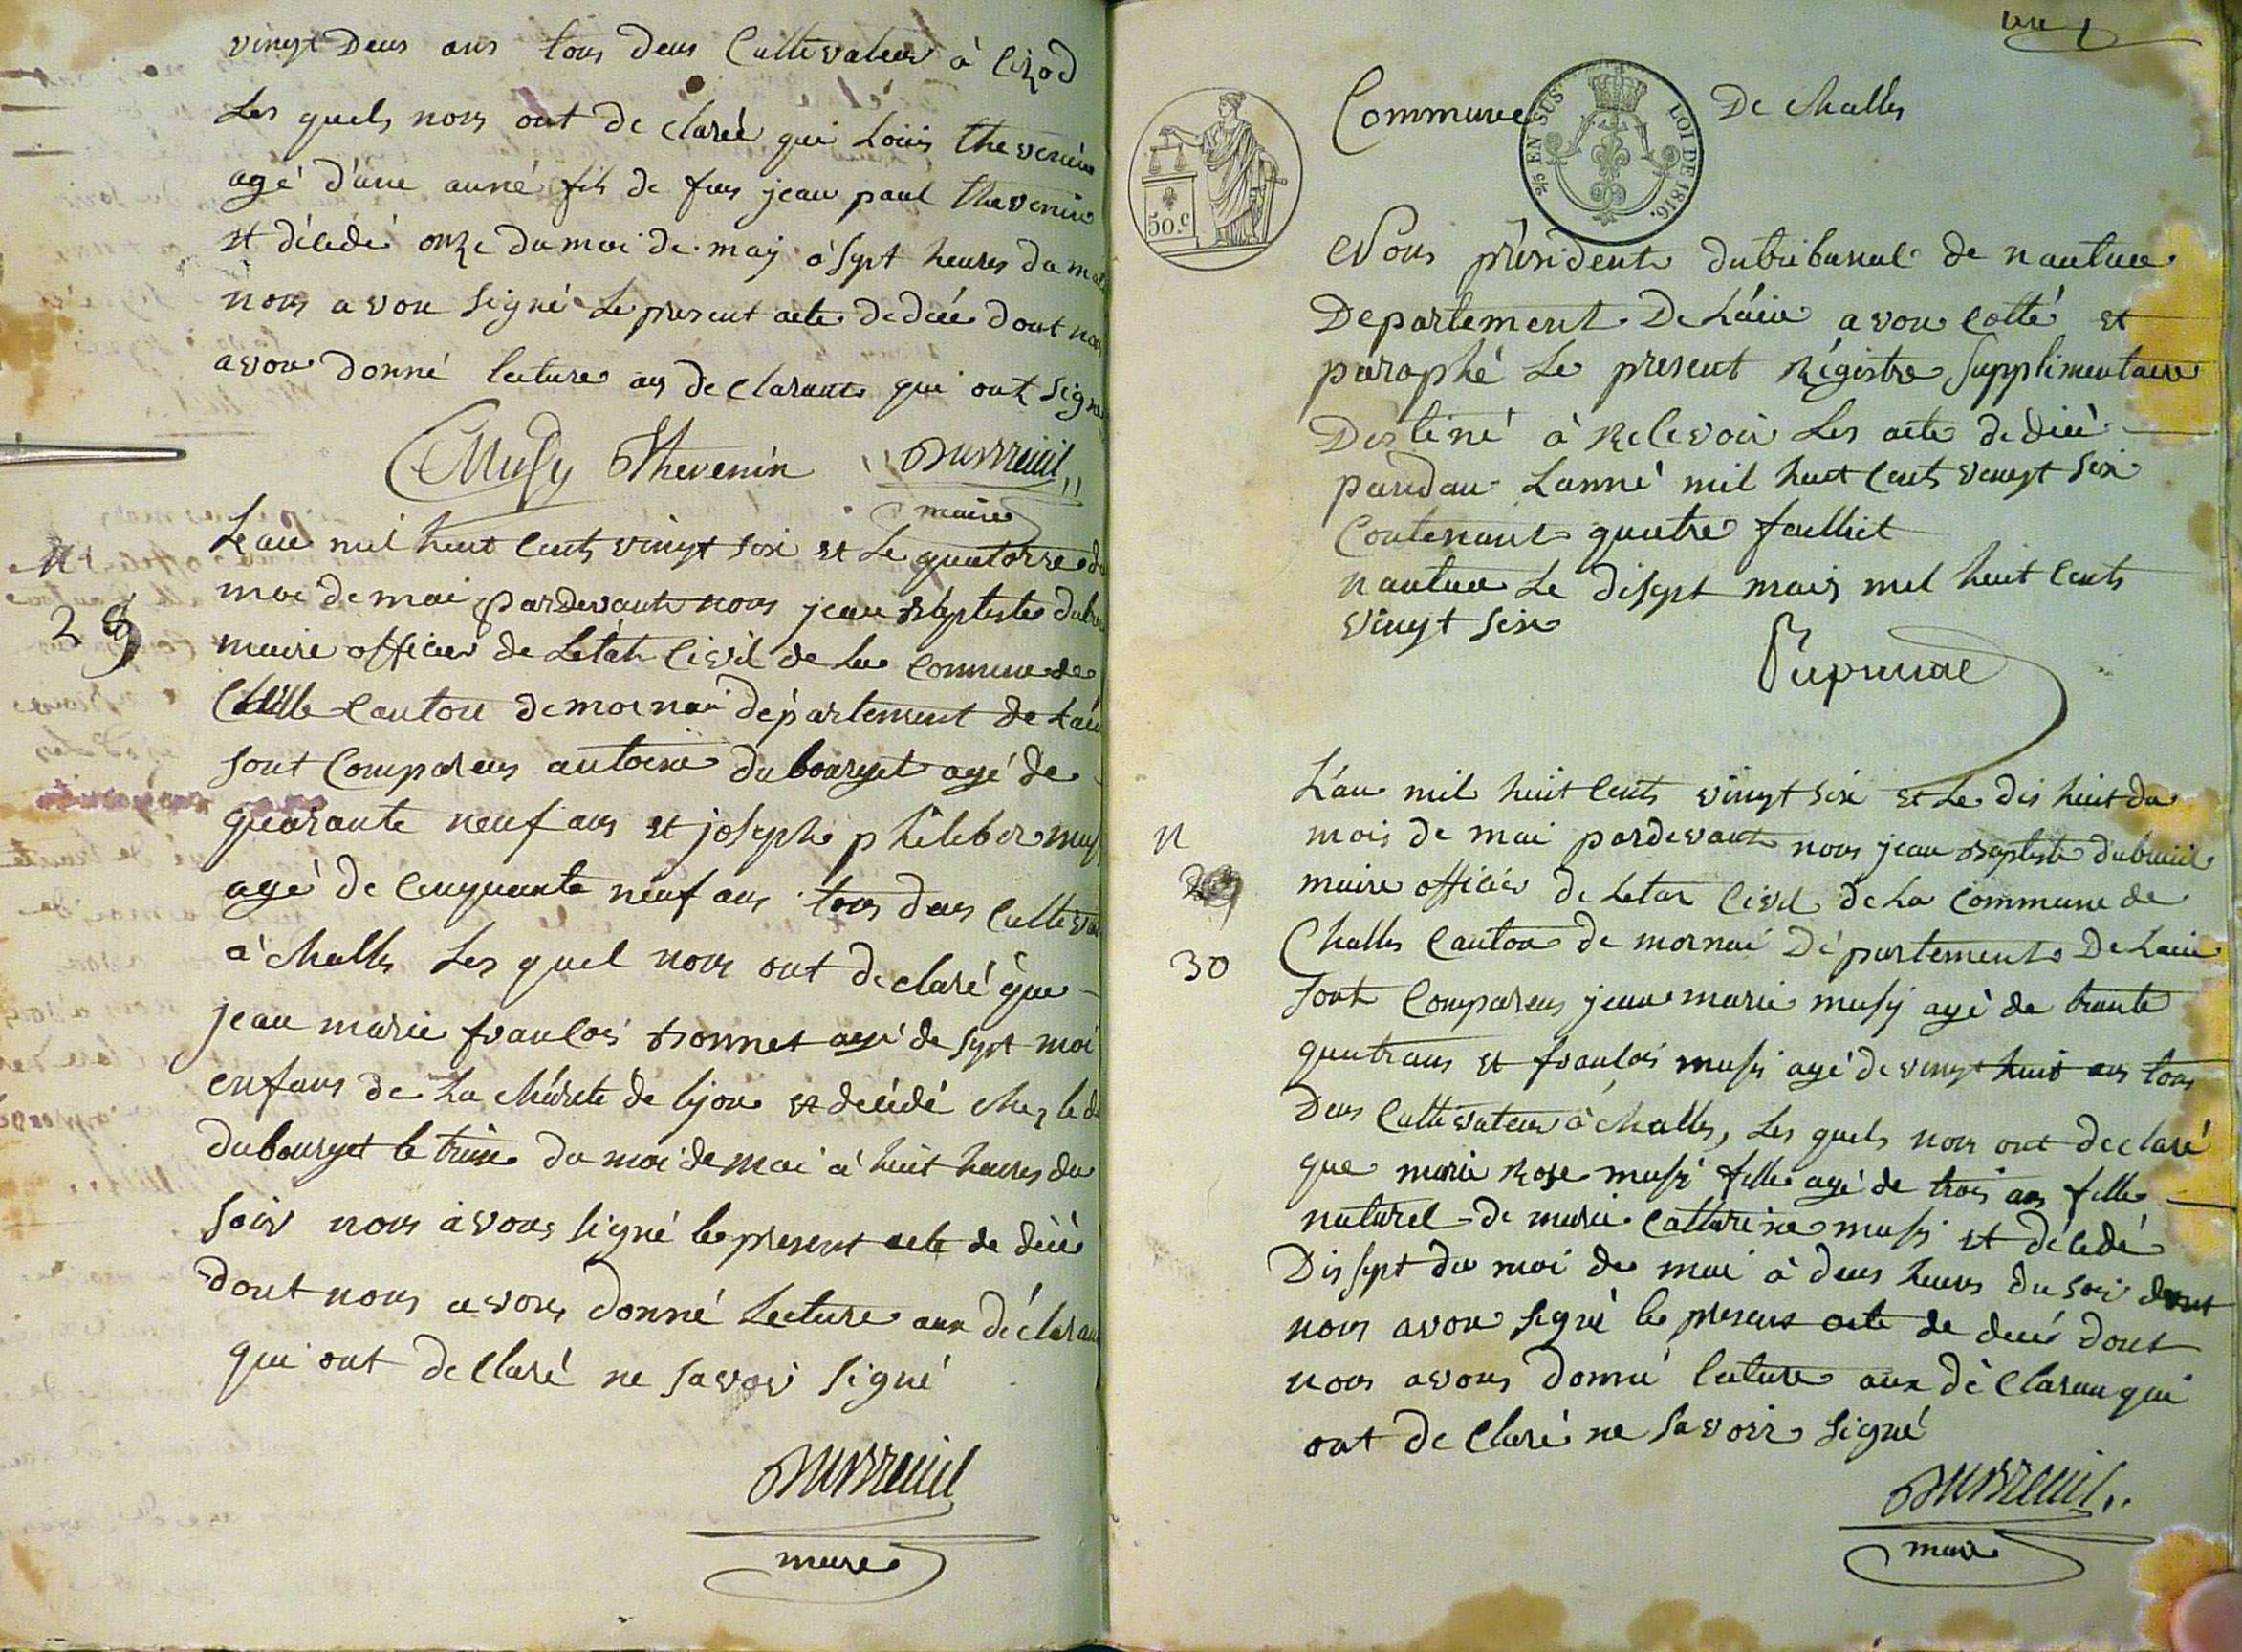 vingt deus ans tous deus Cultivateur à Cizod
Les quels nous ont de claré qui Louis thevenin
agé d'une anné fils de feus jean paul thevenin
et décédé onze du moi de may à sept heures du
nous avon signé Le present acte de déce dont
avon donné lecture aus de clarant qui ont
CMusy Thevenin Dubreuil
maire
Lan mil huit cents vingt six et Le quatorze
N
29
moi de mai pardevant nous jean Baptiste
maire officier de Létat civil de La commune de
Challe canton de mornai département de
sont Comparus antoine dubourget agé de
quarante neuf ans et joseph philiber
agé de cinquante neuf ans tous deus
à challe Les quel nous ont de claré que
jean marie francois bonnet agé de sept moi
enfans de La chérité de lyon et décédé chez le
dubourget le treize du moi de mai à huit heures du
soir nous avons signé le present acte de décé
dont nous avons donné Lecture aux
qui ont de claré ne savoi signé
Dubreuil
maire
un
Commune De challes
2/5 EN SUS LOI DE 1816.
50.c
Nous président du tribunal de nantua
Departement De L'ain avon cotté et
paraphé Le present Régistre supplimentaire
Destiné à Recevoir Les acte de décé
pandan Lanné mil huit cents vingt six
Contenant quatre feulliet
nantua Le disept mais mil huit cents
vingt six
L'an mil huit cents vingt six et Le dis huit du
N
30
mois de mai pardevant nous jean Baptiste dubreuil
maire officier de Letat civil de La commune de
Challes canton de mornai Département De Lain
sont Comparus jean marie musy agé de trante
quatrans et francois musy agé de vingt huit ans tous
Deus Cultivateur à challes, Les quels nous ont declaré
que marie Rose musy fille agé de trois ans fille
naturel de marie catterine musy et décédé
Dis sept du moi de mai à deus heures du soir dont
nous avon signé le present acte de décé dont
nous avons donné lecture aux dé claran qui
ont de claré ne savoir signé
Dubreuil
maire